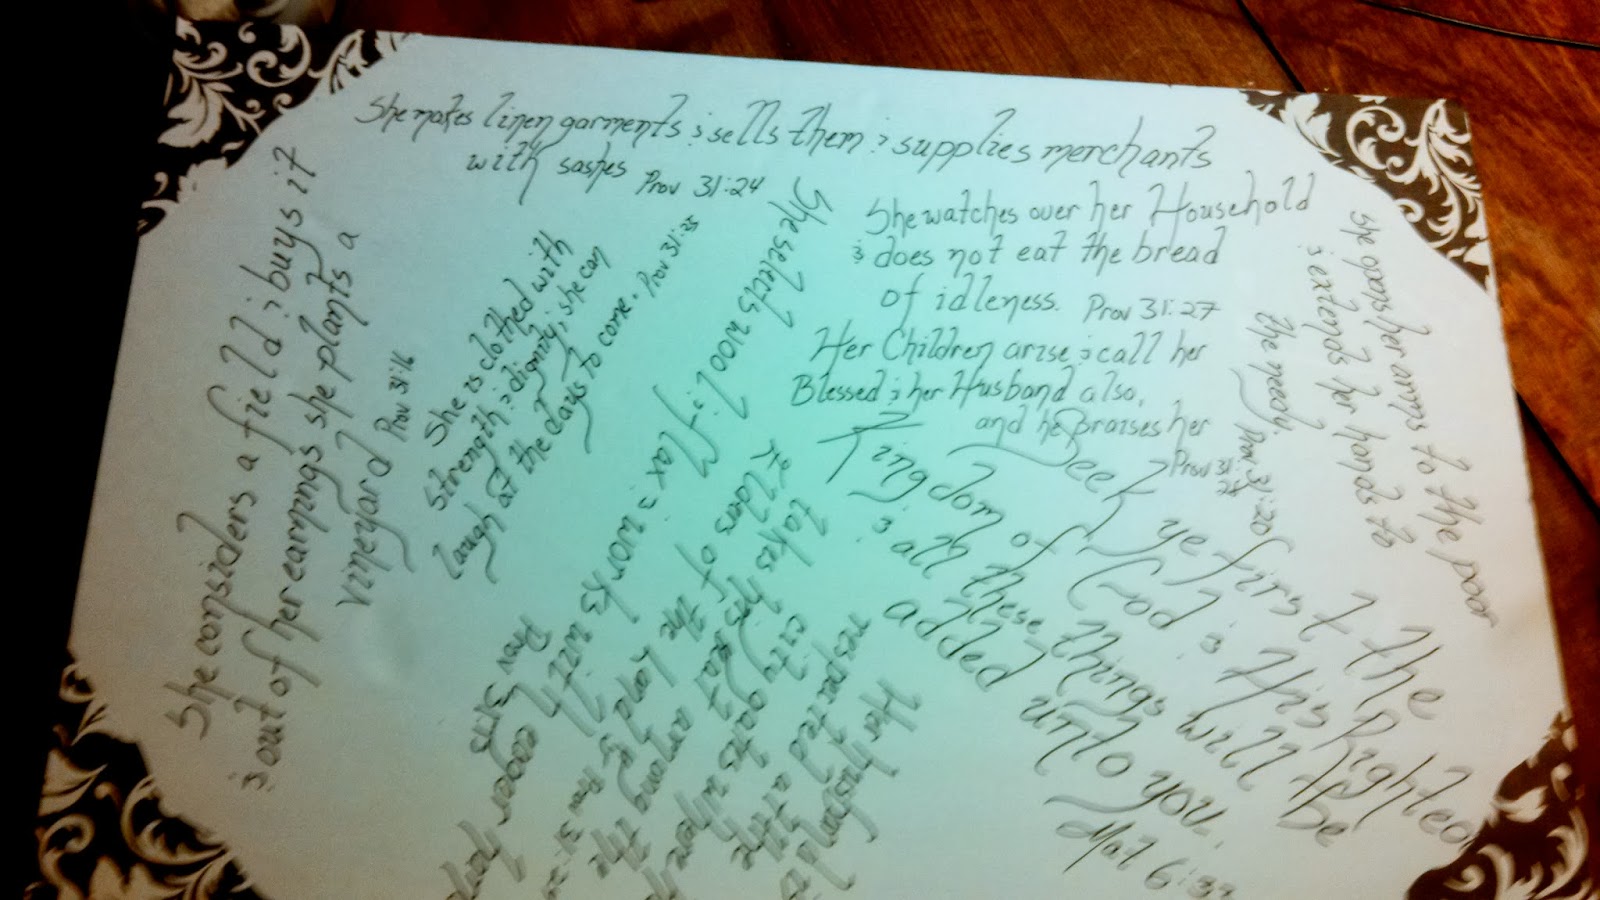 She makes linen garments & sells them & supplies merchants
with sashes Prov 31:24
She considers a field & buys it
& out of her earnings she plants a
vineyard Prov 31:16
She is clothed with
strength & dignity; she can
laugh at the days to come. Prov 31:25
She selects wool & flax & works
with eager
Prov 31:13
She watches over her Household
& does not eat the bread
of idleness. Prov 31:27
Her Children arise & call her
Blessed & her Husband also,
and he Praises her
Prov 31:28
She opens her arms to the poor
& extends her hands to
the needy. Prov 31:20
Seek ye first the
Kingdom of God & His Righteo
& all these things will be
added unto you.
Mat 6:33
Her husband is
respected at the
city gates where
takes his seat
among the
Elders of the land
Prov 31: